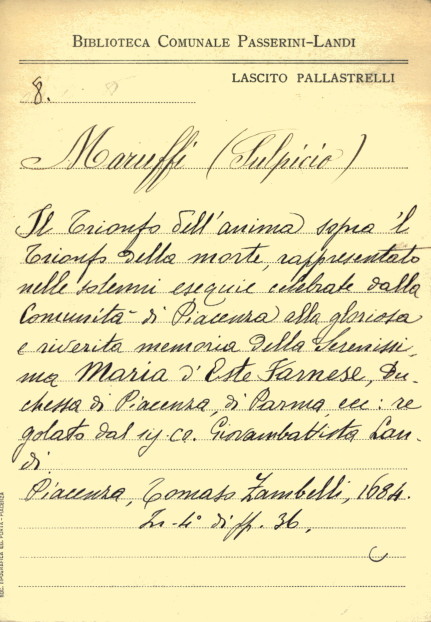 BIBLIOTECA COMUNALE PASSERINI-LANDI
LASCITO PALLASTRELLI
8.
Maruffi (Sulpicio)
Il Trionfo dell'anima sopra 'l
Trionfo della morte, rappresentato
nelle solenni esequie celebrate dalla
Comunità di Piacenza alla gloriosa
e riverita memoria della Serenissi,
ma Maria d'Este Farnese, Du-
chessa di Piacenza, di Parma ecc: re
golato dal sig co. Giovambattista Lan-
di.
Piacenza, Tomaso Zambelli, 1684.
In-4° di pp. 36.